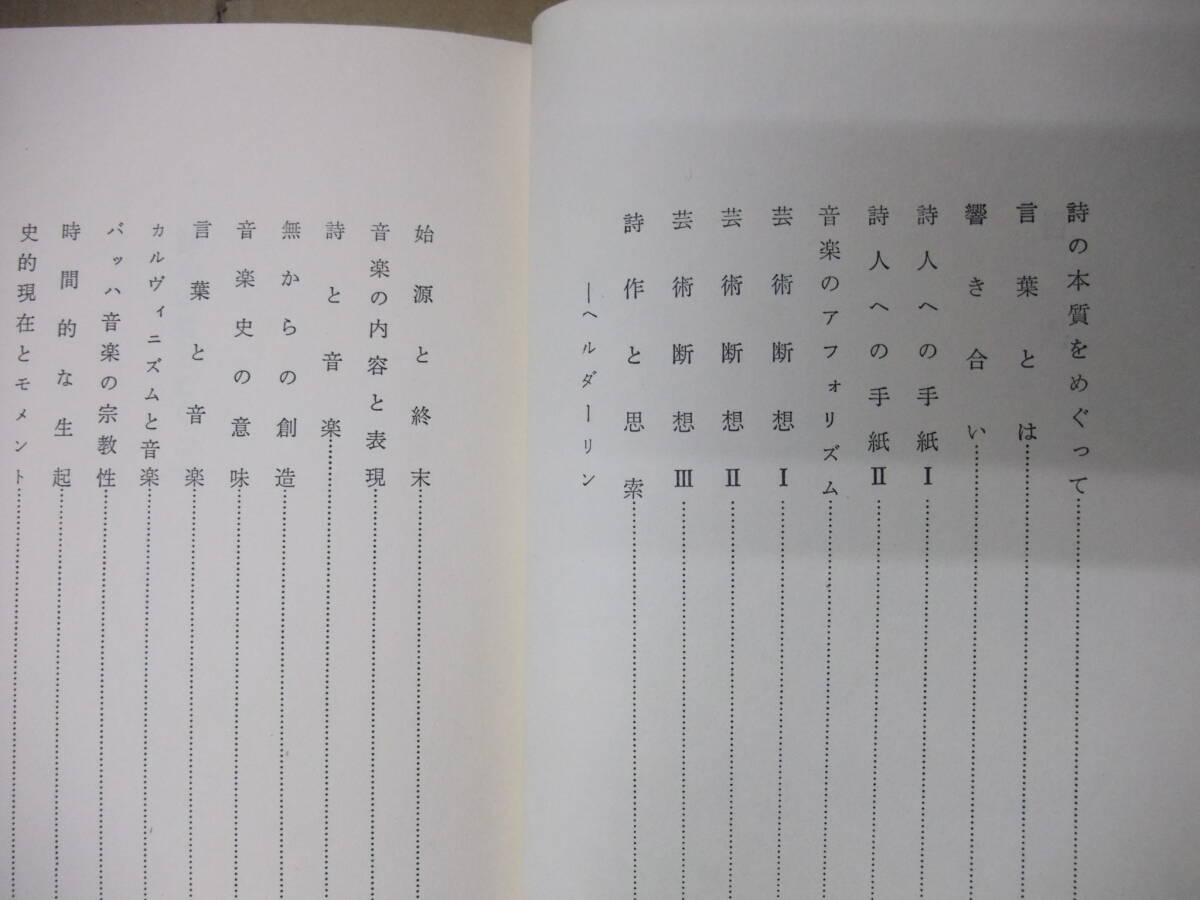 詩の本質をめぐって
言葉とは
響き合い
詩人への手紙Ⅰ
詩人への手紙Ⅱ
音楽のアフォリズム
芸術断想Ⅰ
芸術断想Ⅱ
芸術断想Ⅲ
詩作と思索
―ヘルダーリン
始源と終末
音楽の内容と表現
詩と音楽
無からの創造
音楽史の意味
言葉と音楽
カルヴィニズムと音楽
バッハ音楽の宗教性
時間的な生起
史的現在とモメント